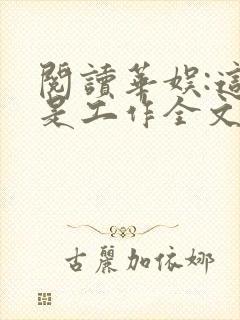 閱讀華娛:這
是工作全文
古麗加依娜